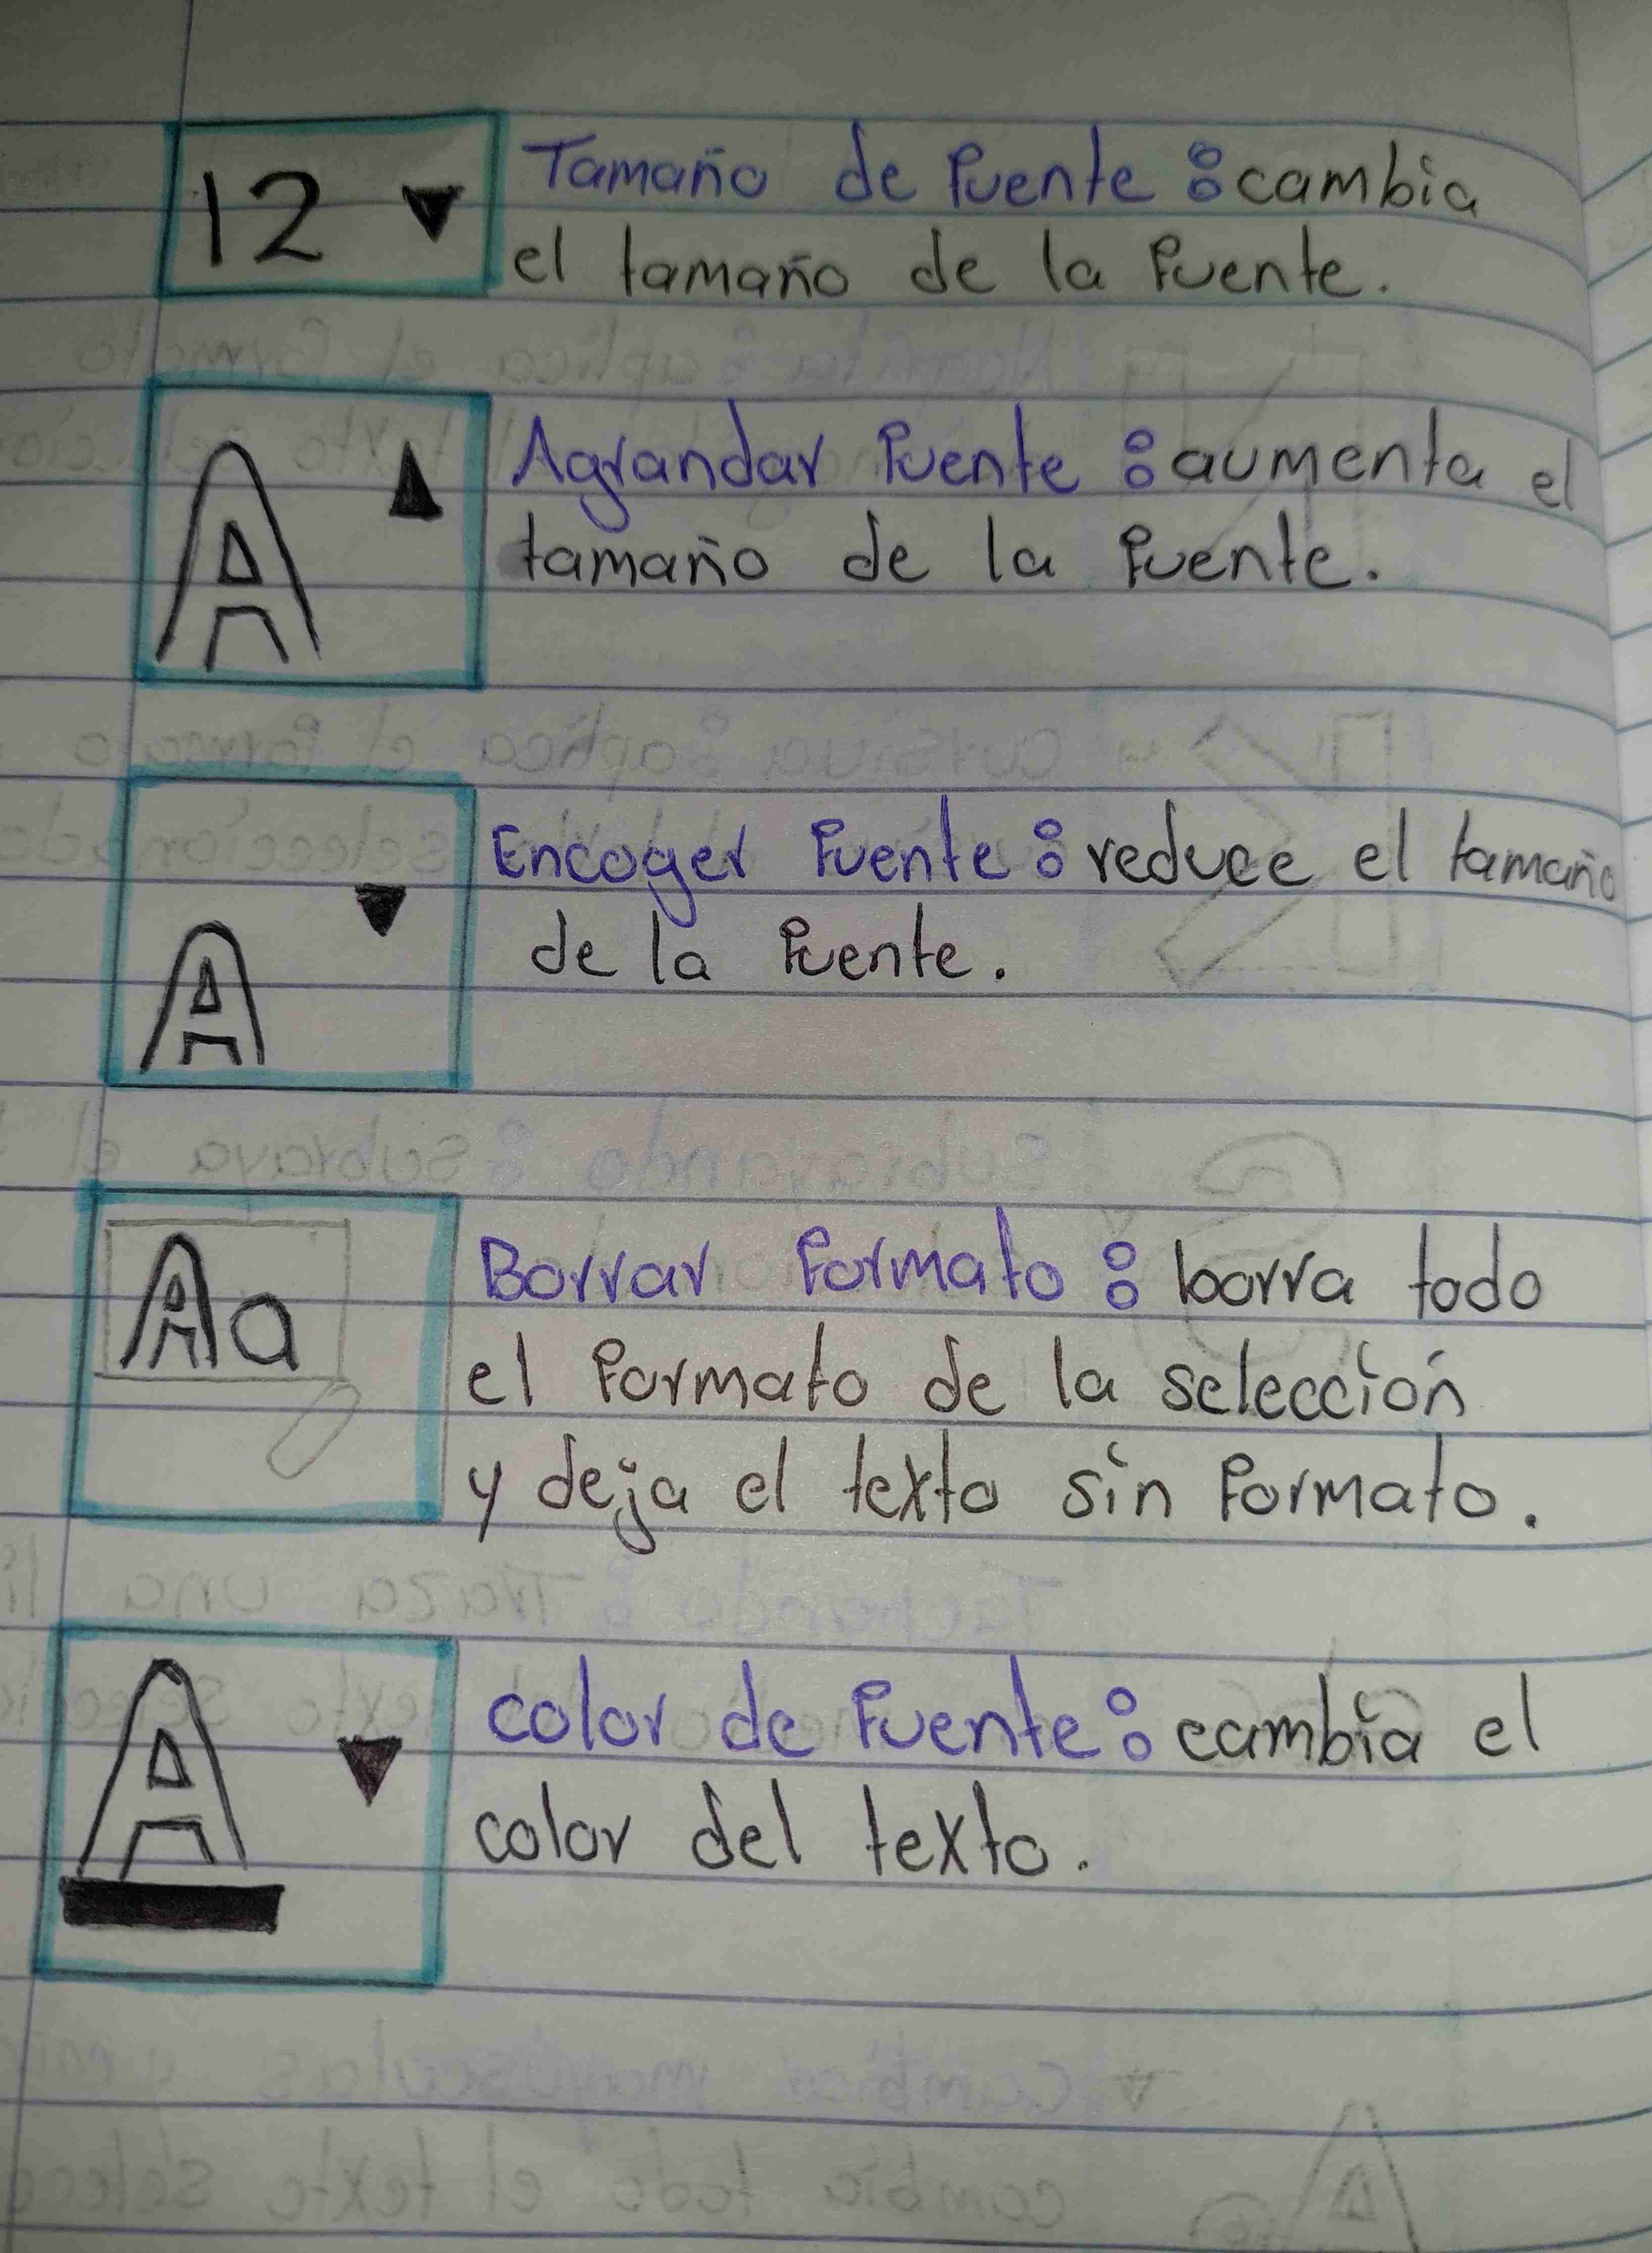 12 Tamaño de Fuente : cambia
el tamaño de la Fuente.
A Agrandar Fuente : aumenta el
tamaño de la Fuente.
A Encoger Fuente : reduce el tamaño
de la Fuente.
Aa Borrar Formato : borra todo
el Formato de la selección
y deja el texto sin Formato.
A color de Fuente : cambia el
color del texto.